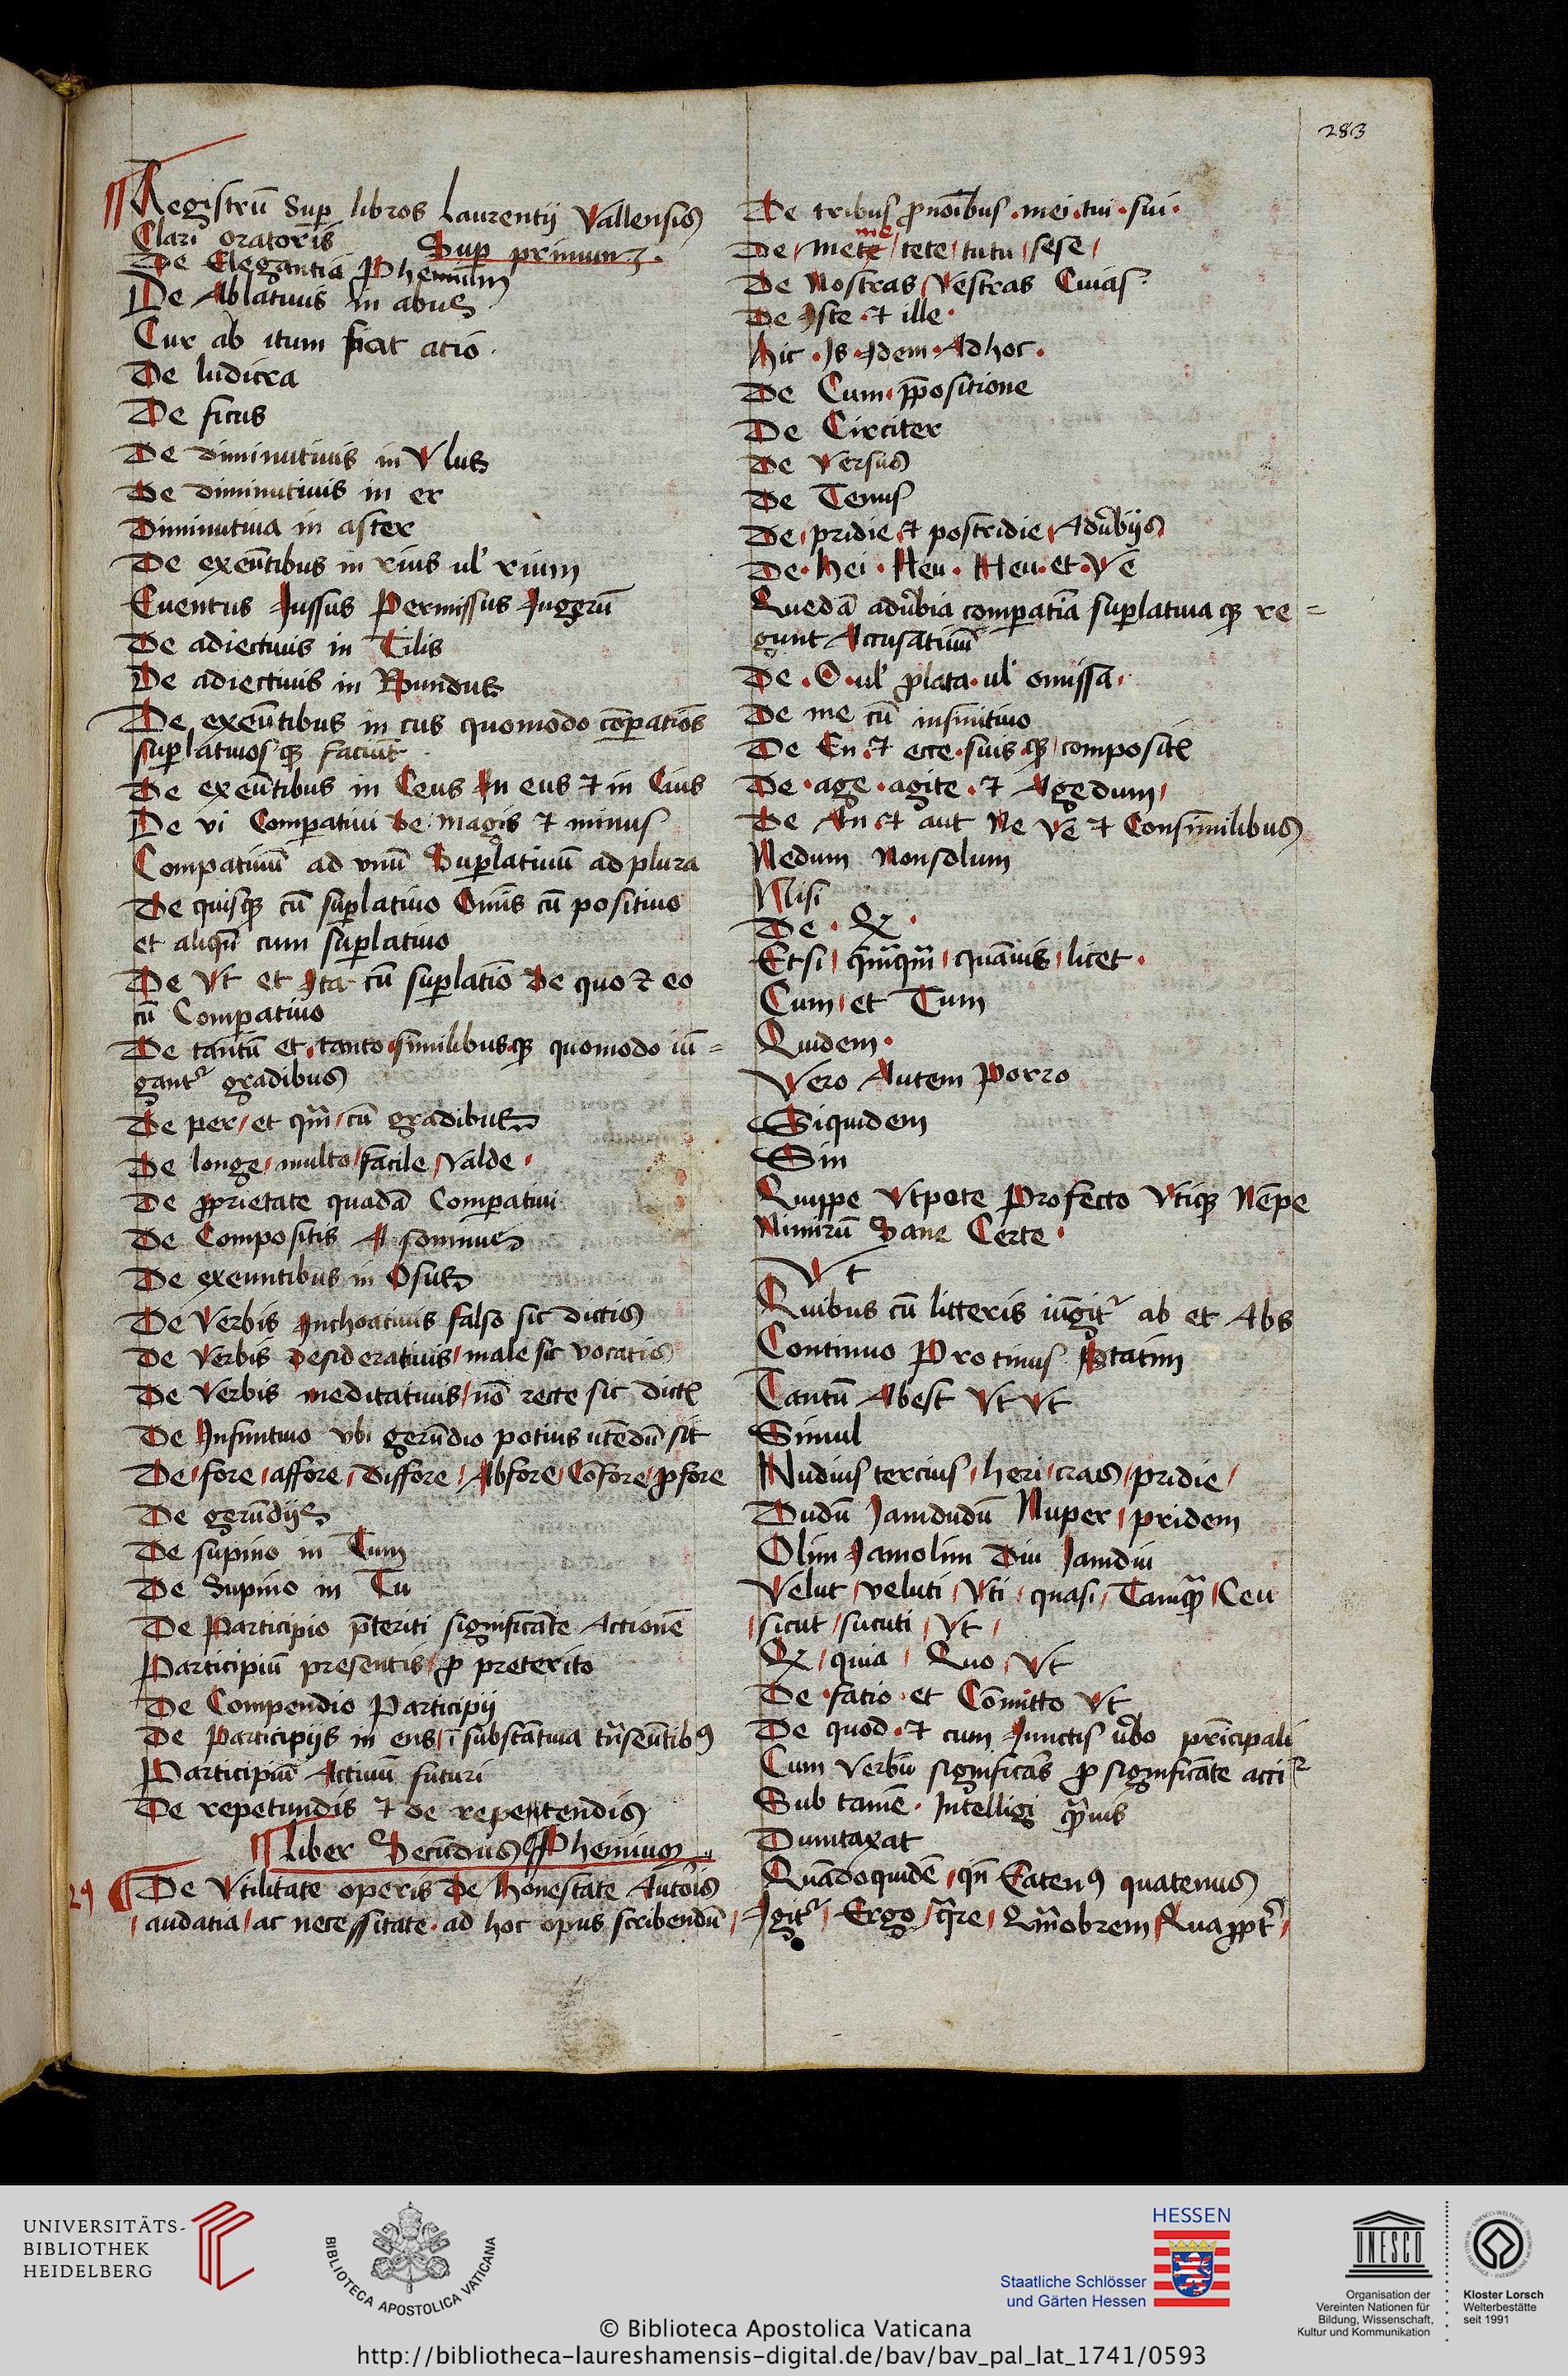 283
Registrū Sup libros Laurentij Vallensis
Clari oratoris Sup primum
De Elegantia Phemium
De Ablatiuis in abus
Cur ab itum fiat atio
De ludicra
De ficus
De diminutiuis in Vlus
De diminutiuis in er
Diminutiua in aster
De exeūtibus in rius ul' rium
Euentus Iussus Permissus Iugerū
De adiectiuis in Tilis
De adiectiuis in Bundus
De exeūtibus in cus quomodo cōpatiōs
suplatiuos qȝ faciūt
De exeūtibus in Ceus In eus et in Cius
De vi Compatiui De magis et minus
Compatiuū ad vnū Suplatiuū ad plura
De quisqȝ cū suplatiuo Omīs cū positiuo
et aliqū cum suplatiuo
De Vt et Ita cū suplatiō De quo et eo
cū Compatiuo
De tantū et tanto similibusqȝ quomodo iū=
gant' gradibus
De per et qm̄ cū gradibus
De longe multo facile Valde
De pprietate quadā Compatiui
De Compositis A somnus
De exeuntibus in Osus
De Verbis Inchoatiuis falso sic dictis
De Verbis Desideratiuis male sic vocatis
De Verbis meditatiuis nō recte sic dict
De Infinitiuo vbi gerūdio potius utēdū sit
De fore affore Diffore Abfore Cōfore pfore
De gerūdijs
De supino in Tum
De Supino in Tu
De Participio p̄teriti significāte Actionē
Participiū presentis p preterito
De Compendio Participij
De Participijs in ens ī substātiua trāseūtibꝰ
Participiū Actiuū futuri
De repetundis et de repentendis
Liber Secūdus Phemium
29 De Vtilitate operis De honestate Autoris
audatia ac necessitate ad hoc opus scribendū
De tribus pnoībus mei tui sui
me
De mete tete tutu sese
De Nostras Vestras Cuias
De Iste et ille
Hic Is Idem Ad hoc
De Cum ppositione
De Circiter
De Versus
De Tenus
De pridie et postridie Adūbijs
De Hei Heu Heu et Ve
Quedā adūbia compatīa suplatiua qȝ re=
gunt Accusatiuū
De O ul' plata ul' omissa
De me cū infinitiuo
De En et ecce suis qȝ composit
De age agite et Agedum
De An et aut Ne Ve et Consimilibus
Nedum Nonsolum
Nisi
De Qꝫ
Etsi qm̄qm̄ quāuis licet
Cum et Tum
Quidem
Vero Autem Porro
Siquidem
Sin
Quippe Vtpote Profecto Vtiqȝ Nēpe
Nimirū Sane Certe
Vt
Quibus cū litteris iūgit' ab et Abs
Continuo Protinus Statim
Tantū Abest Vt Vt
Simul
Nudius tercius heri cras pridie
Dudū Jamdudū Nuper pridem
Olim Jamolim Diu Jamdiu
Velut veluti Vti quasi Tamqꝫ Ceu
sicut sicuti Vt
Qꝫ quia Quo Vt
De fatio et Cōmitto Vt
De quod et cum Iunctis ūbo prīcipali
Cum Verbū significās p significāte acci
Sub tamē Intelligi qm̄uis
Dumtaxat
Quādoquidē qn̄ Eatenꝰ quatenus
Igit' Ergo qre Qm̄obrem Quappt'
UNIVERSITÄTS-
BIBLIOTHEK
HEIDELBERG
BIBLIOTECA APOSTOLICA VATICANA
HESSEN
Staatliche Schlösser
und Gärten Hessen
UNESCO
Organisation der
Vereinten Nationen für
Bildung, Wissenschaft,
Kultur und Kommunikation
Kloster Lorsch
Welterbestätte
seit 1991
© Biblioteca Apostolica Vaticana
http://bibliotheca-laureshamensis-digital.de/bav/bav_pal_lat_1741/0593